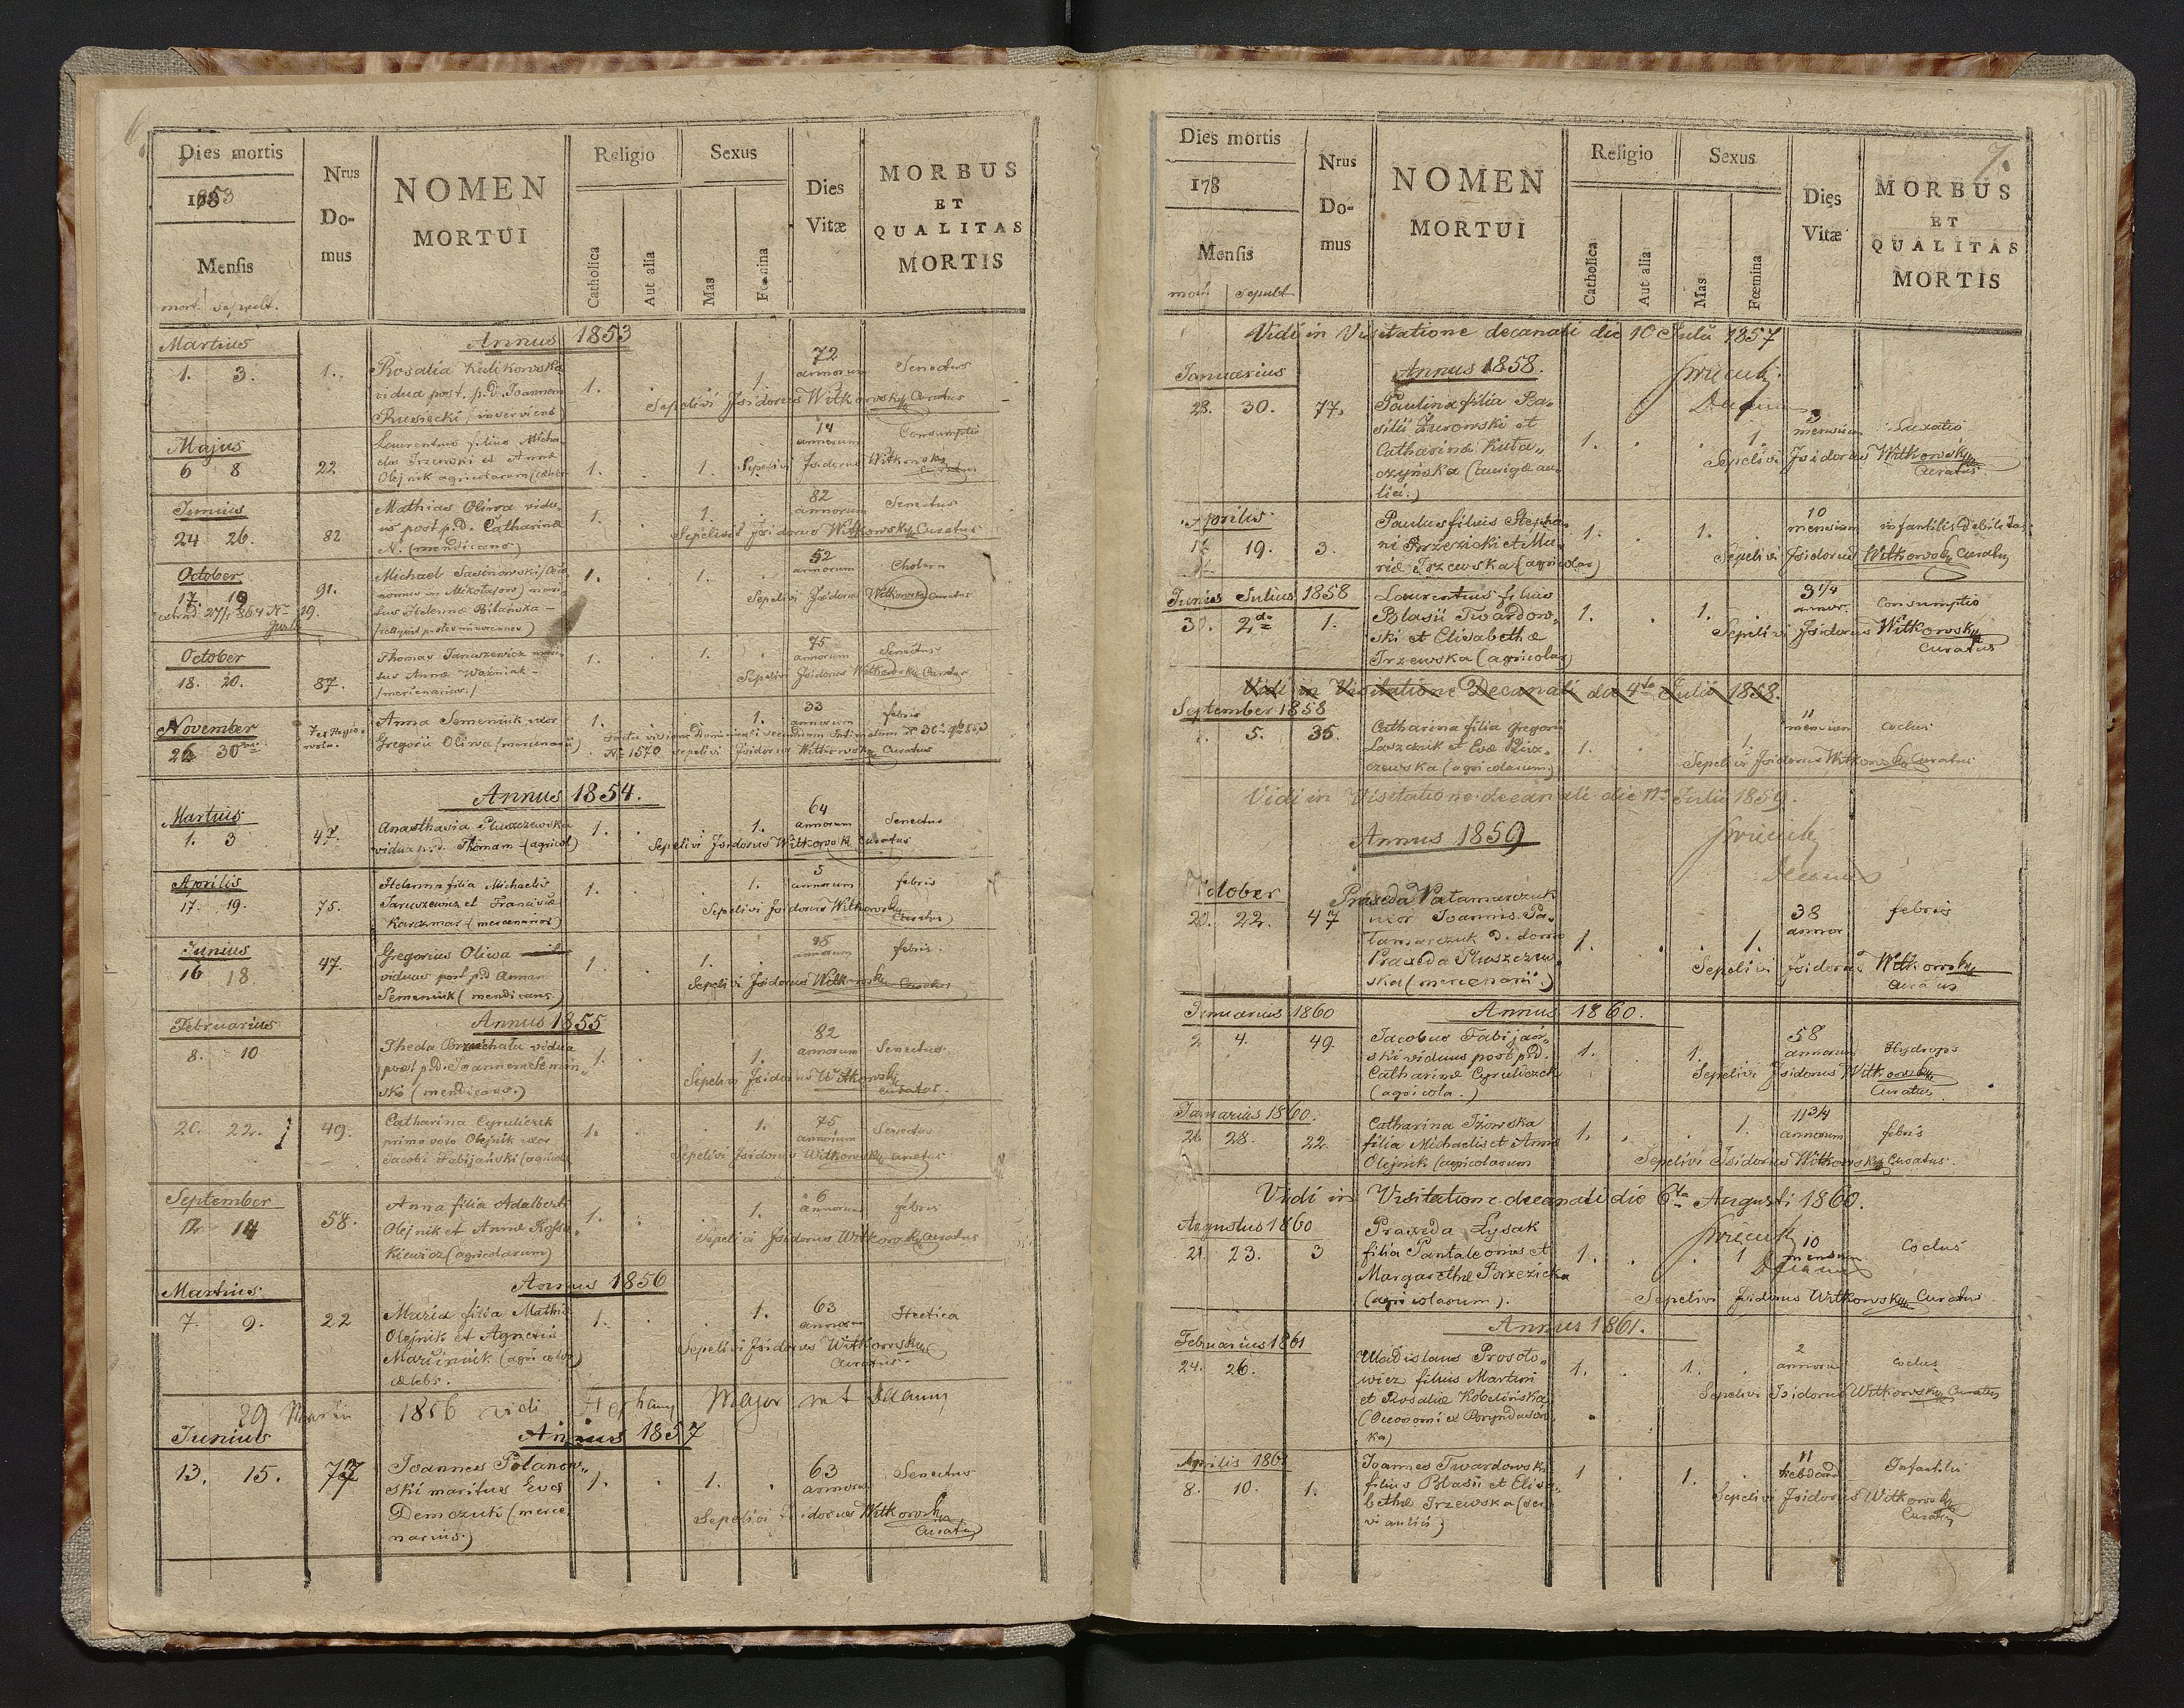 6
Dies mortis
1853
Mensis
mort. sepult.
Nrus Domus
NOMEN MORTUI
Religio
Catholica
Aut alia
Sexus
Mas
Fœmina
Dies Vitæ
MORBUS ET QUALITAS MORTIS
Annus 1853
Martius
1. 3. 1. Rosalia Kulikowska 1. . . 1. 72 annorum Senectus
vidua post. p.d. Joannem
Sepelivi Isidorus Witkowsky Curatus
Majus
6 8 22. Laurentius filius Micha- 1. . 1. 14 annorum Consumptio
elis Trzewski et Annæ
Olejnik agricolarum
Sepelivi Isidorus Witkowsky Curatus
Junius
24 26. 82 Mathias Oliwa vidu- 1. . 1. . 82 annorum Senectus
us post p.d. Catharina
N. (mendicans)
Sepelivit Isidorus Witkowsky Curatus
October
17. 19 91. Michael Sasinowski 1. . 1. . 52 annorum Cholera
tus Helenæ Bilańska
Sepelivi Isidorus Witkowsky Curatus
October
18. 20. 87. Thomas Januszewicz mari- 1. . 1. . 75 annorum Senectus
tus Annæ Woźniak
(mercenarius)
Sepelivi Isidorus Witkowsky Curatus
November
26 30 Anna Semeniuk uxor 1. . . 1. 33 annorum febris
Gregorii Oliwa (mercenarii)
No 1570 sepelivi Isidorus Witkowsky Curatus
Annus 1854.
Martius
1. 3 47. Anasthasia Pluszczewska 1. . . 1. 64 annorum Senectus
vidua p.d. Thomam (agricol)
Sepelivi Isidorus Witkowsky Curatus
Aprilis
17. 19. 75. Helenna filia Michaelis 1. . . 1. 5 annorum febris
Januszewicz et Franciscæ
Karczmar (mercenarior)
Sepelivi Isidorus Witkowsky Curatus
Junius
16 18 47. Gregorius Oliwa 1. . 1. annorum febris.
viduus post p.d Annam
Semeniuk (mendicans)
Sepelivi Isidorus Witkowsky Curatus
Annus 1855
Februarius
8. 10 Theda vidua 1. . . 1. 82 annorum Senectus
post p.d. Joannem Semin-
ski (mendicans.)
Sepelivi Isidorus Witkowsky Curatus.
20. 22. 49. Catharina Cyruliczek 1. . . 1. 75 annorum Senectus
primo voto Olejnik uxor
Jacobi Fabijański (agricola
Sepelivi Isidorus Witkowsky Curatus
September
12 14 58. Anna filia Adalberti 1. . . 1. 6 annorum febris
Olejnik et Annæ Kossa-
kiewicz (agricolarum)
Sepelivi Isidorus Witkowsky Curatus
Annus 1856
Martius
7. 9. 22 Maria filia Mathiæ 1. . . 1. 63 annorum Hectica
Olejnik et Agnetis
Marciniuk
cælebs.
Sepelivi Isidorus Witkowsky Curatus.
29 Martii 1856 vidi
Annus 1857
Junius
13. 15. 77 Joannes Polanow- 1. . 1. . 63 annorum Senectus
ski maritus Evæ
Demczuk (merce
narius)
Sepelivi Isidorus Witkowsky Curatus
7.
Dies mortis
178
Mensis
mort sepult
Nrus Domus
NOMEN MORTUI
Religio
Catholica
Aut alia
Sexus
Mas
Fœmina
Dies Vitæ
MORBUS ET QUALITAS MORTIS
Vidi in Visitatione decanali die 10 Julii 1857
Annus 1858.
Januarius
28. 30. 77. Paulina filia Ba- 1. . . 1. 3 mensium Laxatio
silii Żurowski et
Catharinæ Kuta-
czyńska (aurigæ au-
lici.)
Sepelivi Isidorus Witkowsky Curatus
Aprilis
17 19. 3. Paulus filius Stepha- 1. . 1. . 10 mensium infantilis debilitas
ni Porzezicki et Ma-
riæ Trzewska (agricolar)
Sepelivi Isidorus Witkowsky Curatus
Junius Julius 1858
30. 2da 1. Laurentius filius 1. . 1. . 3 1/4 annor. Consumptio
Blasii Twardow-
ski et Elisabethæ
Trzewska (agricolar)
Sepelivi Isidorus Witkowsky Curatus
Vidi in Visitatione Decanali die 4ta Julii 1858.
September 1858
5. 35. Catharina filia Gregorii 1. . . 1. 11 mensium coclus
czewska (agricolarum)
Sepelivi Isidorus Witkowsky Curatus
Vidi in Visitatione decanali die Julii 1859.
Annus 1859
October
20. 22. 47 Praxeda Patamarczuk 1. . . 1. 38 annor febris
uxor Joannis Pa-
tamarczuk D. domo
Praxeda Pluszczew-
ska (mercenarii.)
Sepelivi Isidorus Witkowsky Curatus
Annus 1860.
Januarius 1860
2 4. 49. Jacobus Fabijań- 1. . 1. 58 annorum Hydrops
ski viduus post p.d.
Catharinæ Cyruliczek
(agricola.)
Sepelivi Isidorus Witkowsky Curatus
Januarius 1860.
26 28. 22. Catharina Trzewska 1. . . 1. 11 3/4 annorum febris
filia Michaelis et Annæ
Olejnik (agricolarum
Sepelivi Isidorus Witkowsky Curatus.
Vidi in Visitatione decanali die 6ta Augusti 1860.
Augustus 1860
21. 23. 3 Praxeda Lysak 1. . . 1 10 mensium Coclus
filia Pantaleonis et
Margarethæ Porzezicka
(agricolarum).
Sepelivi Isidorus Witkowsky Curatus
Annus 1861.
Februarius 1861
24. 26. Uladislaus Prosoto- 1. . 1. 2 annorum coclus
wicz filius Martini
et Rosaliæ Kobelińska
Sepelivi Isidorus Witkowsky Curatus
Aprilis 1861
8. 10. 1. Joannes Twardowski 1 . 1. . 11 hebdom Infantilis
filius Blasii et Elisa-
bethæ Trzewska (ser-
vi aulici)
Sepelivi Isidorus Witkowsky Curatus